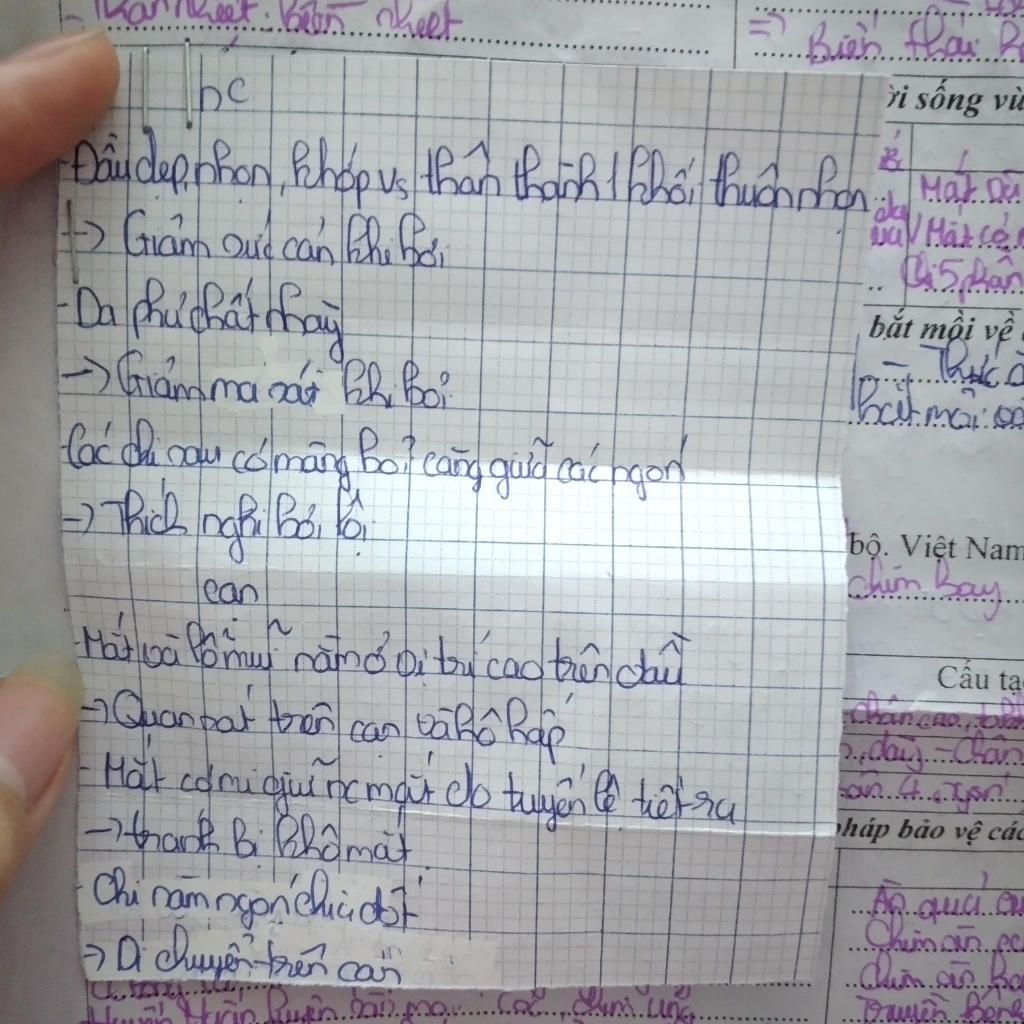 - Thân nhiệt: biến nhiệt
=> Biến thái
nc
- Đầu dẹp, nhọn, khớp vs thân thành 1 khối thuôn nhọn
-> Giảm sức cản khi bơi
- Da phủ chất nhày
-> Giảm ma sát khi bơi
Các chi sau có màng bơi căng giữa các ngón
-> Thích nghi bơi lội
cạn
- Mắt và lỗ mũi nằm ở vị trí cao trên đầu
-> Quan sát trên cạn và hô hấp
- Mắt có mi giữ nc mắt do tuyến lệ tiết ra
-> tránh bị khô mắt
- Chi năm ngón chia đốt
-> Di chuyển trên cạn
ời sống vù
Mặt
Mặt có
Chi 5 phần
bắt mồi về
- Thức ă
bắt mồi
bộ. Việt Nam
chim bay
Cấu tạ
chân cao,
, dày - Chân
4 ngón
pháp bảo vệ các
Ăn quả
Chim ăn
Chim ăn